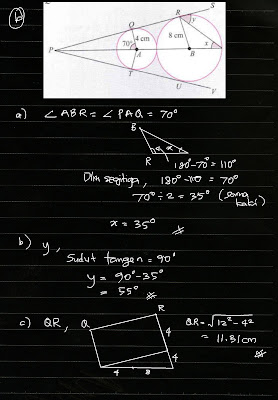 b
S
R
Q
y
4 cm
8 cm
70°
x
P
A
B
T
U
V
a) ∠ABR = ∠PAQ = 70°
B
R
x
x
180°-70° = 110°
Dlm segitiga, 180°-110° = 70°
70° ÷ 2 = 35° (sama kaki)
x = 35°
b) y,
Sudut tangen = 90°
y = 90°-35°
= 55°
c) QR,
R
Q
4
4
4
8
QR = √12² - 4²
= 11.31 cm